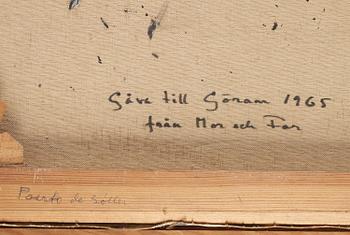 Gåva till Göran 1965
från Mor och Far
Puerto de Soller